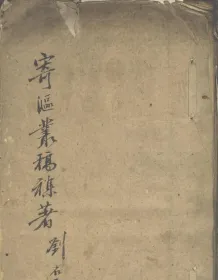 寄漚叢稿襍著
劉